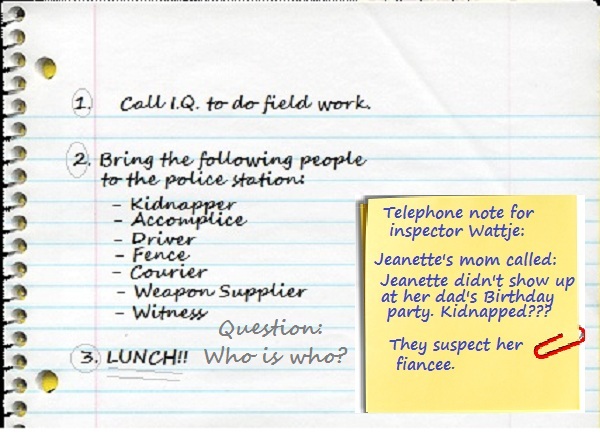 1. Call I.Q. to do field work.
2. Bring the following people
to the police station:
- Kidnapper
- Accomplice
- Driver
- Fence
- Courier
- Weapon Supplier
- Witness
3. LUNCH!!
Question:
Who is who?
Telephone note for
inspector Wattje:
Jeanette's mom called:
Jeanette didn't show up
at her dad's Birthday
party. Kidnapped???
They suspect her
fiancee.